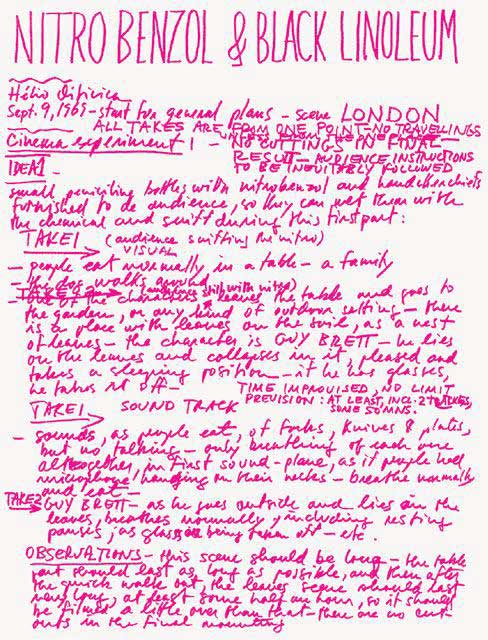 NITRO BENZOL & BLACK LINOLEUM
Hélio Oiticica
Sept. 9, 1969 - start for general plans - scene LONDON
ALL TAKES ARE FROM ONE POINT - NO TRAVELLINGS
Cinema experiment 1 - NO CUTTINGS IN FINAL
RESULT - AUDIENCE INSTRUCTIONS
TO BE INEVITABLY FOLLOWED
IDEA 1 -
small penicillin bottles with nitrobenzol and handkerchiefs
furnished to de audience, so they can wet them with
the chemical and sniff during this first part:
TAKE 1 (audience sniffing the nitro)
VISUAL
- people eat normally in a table - a family
- the dog walks around
- one of the characters leaves the table and goes to
the garden, or any kind of outdoor setting - there
is a place with leaves on the soil, as a nest
of leaves - the character is GUY BRETT - he lies
on the leaves and collapses in it, pleased and
takes a sleeping position - if he has glasses,
he takes it off -
TIME IMPROVISED, NO LIMIT
PREVISION: AT LEAST, INCL. 2 TAKES,
SOME 50 MNS.
TAKE 1 SOUND TRACK
- sounds, as people eat, of forks, knives & plates,
but no talking - only breathing of each one
altogether, in first sound-plane, as if people had
microphone hanging on their necks - breathe normally
and eat -
TAKE 2 GUY BRETT - as he goes outside and lies in the
leaves, breathes normally, including resting
pauses; as glasses being taken off - etc.
OBSERVATIONS - this scene should be long - the table
part should last as long as possible, and then after
the quick walk out, the leaves scene should last
very long, at least some half an hour, so it should
be filmed a little over than that - there are no cut-
outs in the final mounting